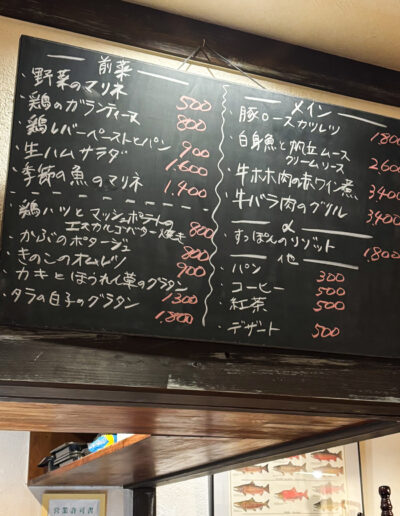 前菜
・野菜のマリネ 500
・鶏のガランティーヌ 800
・鶏レバーペーストとパン 900
・生ハムサラダ 1.600
・季節の魚のマリネ 1.400
・鶏ハツとマッシュポテトの
エスカルゴバター焼き 800
・かぶのポタージュ 800
・きのこのオムレツ 900
・カキとほうれん草のグラタン 1300
・タラの白子のグラタン 1.800
メイン
・豚ロースカツレツ 1800
・白身魚と帆立ムース
クリームソース 2.600
・牛ホホ肉の赤ワイン煮 3.400
・牛バラ肉のグリル 3.400
〆
・すっぽんのリゾット 1800
他
・パン 300
・コーヒー 500
・紅茶 500
・デザート 500
営業許可書